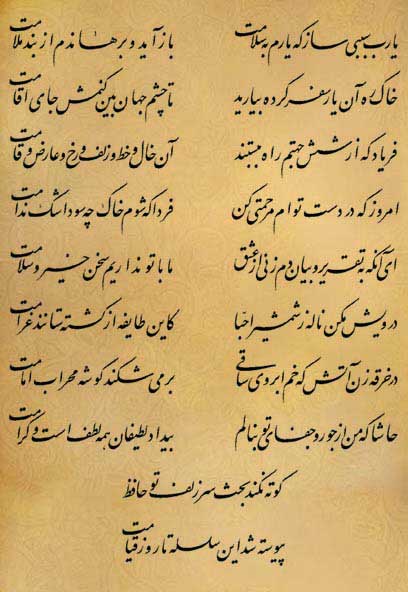 یارب سببی ساز که یارم به سلامت بازآید و برهاندم از بند ملامت
خاک ره آن یار سفر کرده بیارید تا چشم جهان بین کنمش جای اقامت
فریاد که از شش جهتم راه ببستند آن خال و خط و زلف و رخ و عارض و قامت
امروز که در دست توام مرحمتی کن فردا که شوم خاک چه سود اشک ندامت
ای آنکه به تقریر و بیان دم زنی از عشق ما با تو نداریم سخن خیر و سلامت
درویش مکن ناله ز شمشیر احبا کاین طایفه از کشته ستانند غرامت
در خرقه زن آتش که خم ابروی ساقی بر می شکند گوشه محراب امامت
حاشا که من از جور و جفای تو بنالم بیداد لطیفان همه لطف است و کرامت
کوته نکند بحث سر زلف تو حافظ
پیوسته شد این سلسله تا روز قیامت